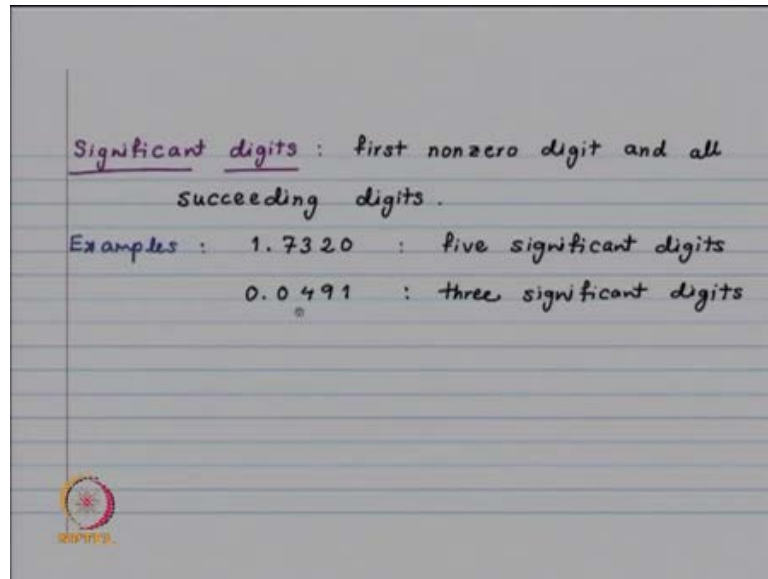 Significant digits : first nonzero digit and all
succeeding digits.
Examples : 1.7320 : five significant digits
0.0491 : three significant digits
NPTEL